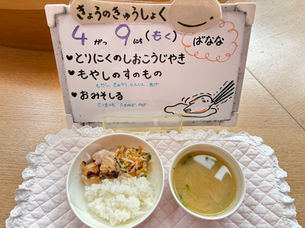 きょうのきゅうしょく
4がつ9にち(もく)
ばなな
♥とりにくのしおこうじやき
♥もやしのすのもの
もやし きゅうり にんじん
♥おみそしる